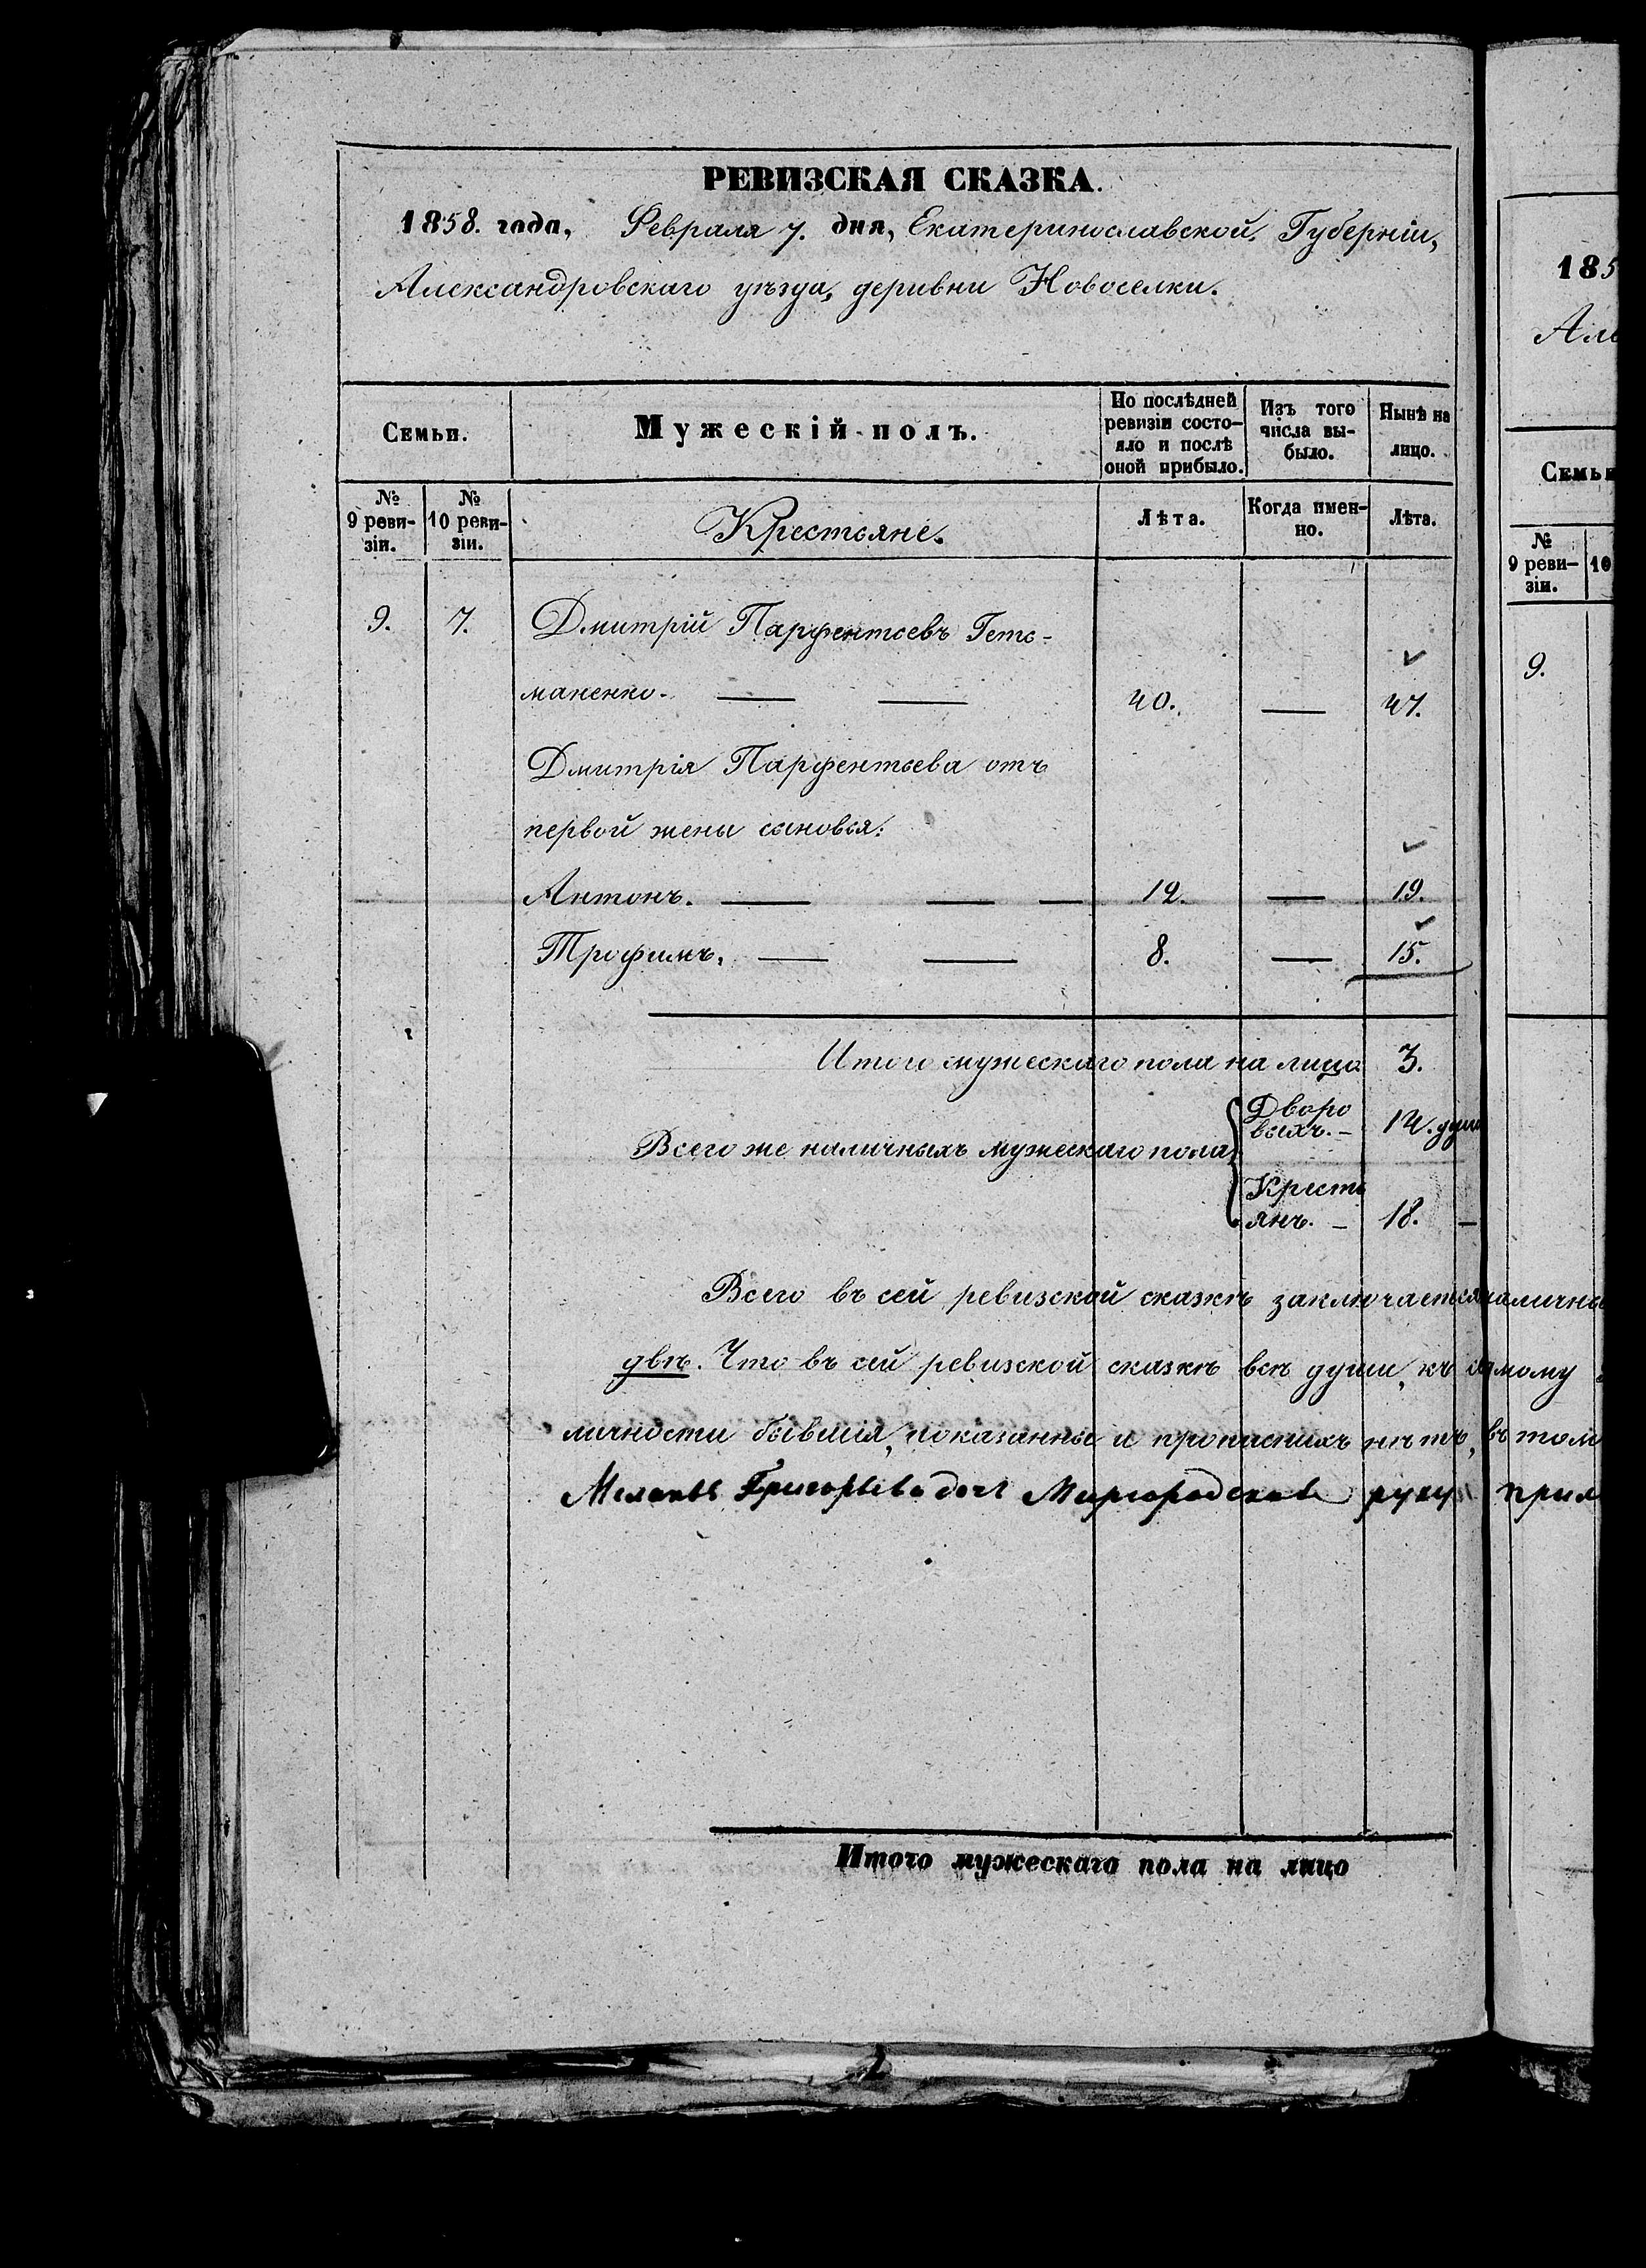 РЕВИЗСКАЯ СКАЗКА.
1858. года, Февраля 7. дня, Екатеринославской, Губерніи,
Александровскаго уѣзда, деривни Новоселки.
Семьи.
Мужескій полъ.
По послѣдней ревизіи состо-
яло и послѣ оной прибыло.
Изъ того числа вы-
было.
Нынѣ на лицо.
№ 9 реви-
зіи.
№ 10 реви-
зіи.
Крестьяне.
Лѣта.
Когда имен-
но.
Лѣта.
9. 7. Дмитрій Парфентьевъ Геть-
маненко. — — 40. — 47.
Дмитрія Парфентьева отъ
первой жены сыновья:
Антонъ. — — — 12. — 19.
Трофимъ. — — 8. — 15.
Итого мужескаго пола на лицо 3.
Всего же наличныхъ мужескаго пола
Дворо
выхъ. — 14. душ
Кресть
янъ. — 18. —
Всего въ сей ревизской сказкѣ заключается наличны
двѣ. Что въ сей ревизской сказкѣ всѣ души, къ самому
личности бывшія, показанны и прописныхъ нѣтъ, въ том
Григорьева доч Миргородская руку прил
Итого мужескаго пола на лицо
185
Але
Семьи
№ 9 реви-
зіи.
10
9.